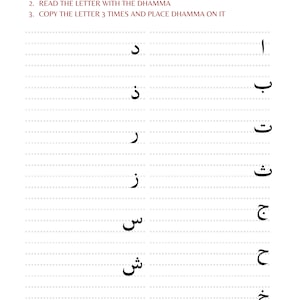 2. READ THE LETTER WITH THE DHAMMA
3. COPY THE LETTER 3 TIMES AND PLACE DHAMMA ON IT
ا
ب
ت
ث
ج
ح
خ
د
ذ
ر
ز
س
ش